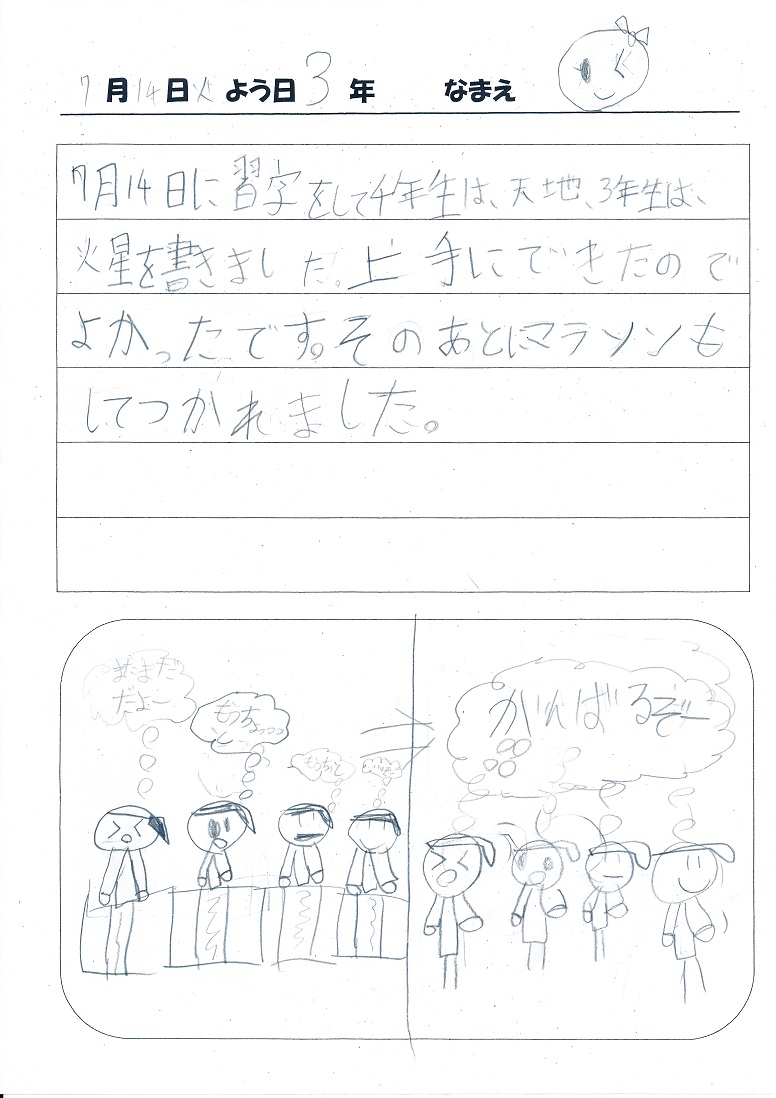 7月14日火よう日3年 なまえ
7月14日に習字をして4年生は、天地、3年生は、
火星を書きました。上手にできたので
よかったです。そのあとにマラソンも
してつかれました。
まだまだ
だよー
もうちょっっっ
と
もうちょと
がんばるぞー